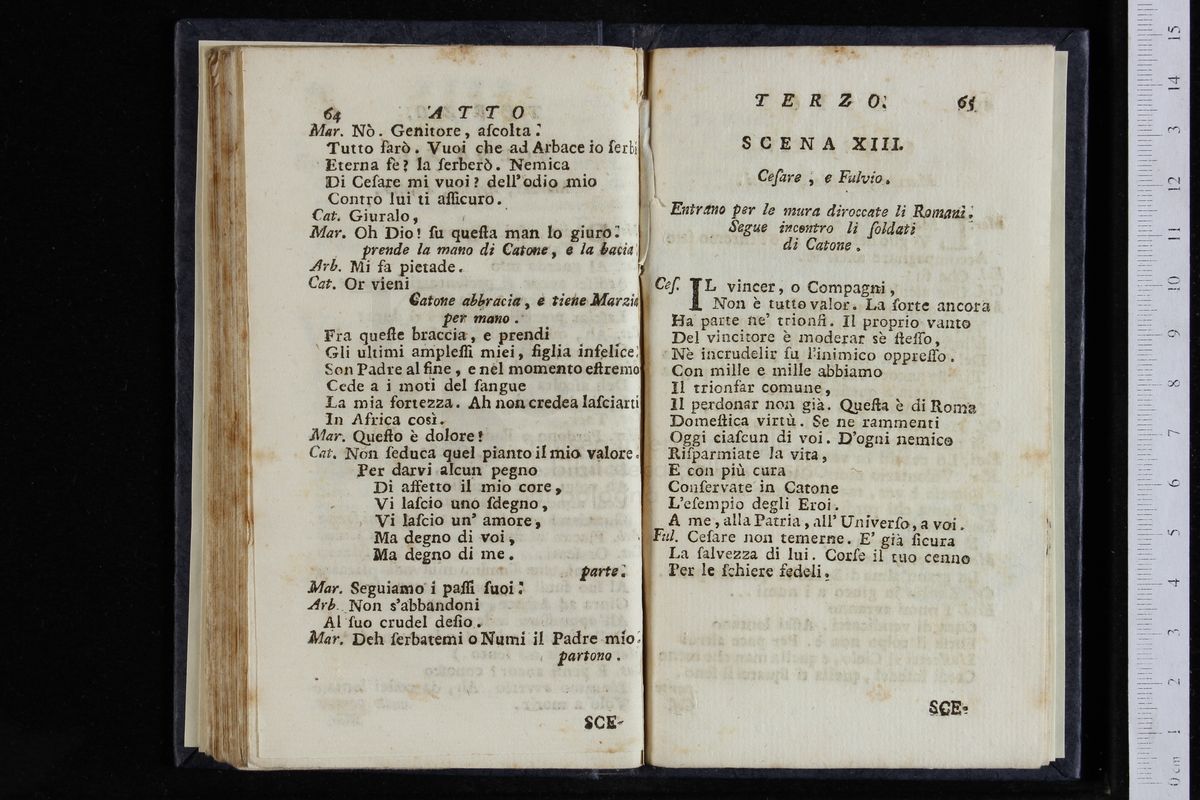 64 ATTO
Mar. Nò. Genitore, aſcolta.
Tutto farò. Vuoi che ad Arbace io ſerbi
Eterna fe? la ſerberò. Nemica
Di Ceſare mi vuoi? dell'odio mio
Contro lui ti aſſicuro.
Cat. Giuralo,
Mar. Oh Dio! ſu queſta man lo giuro.
prende la mano di Catone, e la bacia
Arb. Mi fa pietade.
Cat. Or vieni
Catone abbracia, e tiene Marzia
per mano.
Fra queſte braccia, e prendi
Gli ultimi ampleſſi miei, figlia infelice.
Son Padre al fine, e nel momento eſtremo
Cede a i moti del ſangue
La mia fortezza. Ah non credea laſciarti
In Africa così.
Mar. Queſto è dolore!
Cat. Non ſeduca quel pianto il mio valore.
Per darvi alcun pegno
Di affetto il mio core,
Vi laſcio uno ſdegno,
Vi laſcio un' amore,
Ma degno di voi,
Ma degno di me.
parte.
Mar. Seguiamo i paſſi ſuoi.
Arb. Non s'abbandoni
Al ſuo crudel deſio.
Mar. Deh ſerbatemi o Numi il Padre mio.
partono.
SCE-
TERZO. 65
SCENA XIII.
Ceſare, e Fulvio.
Entrano per le mura diroccate li Romani.
Segue incontro li ſoldati
di Catone.
Ceſ. IL vincer, o Compagni,
Non è tutto valor. La ſorte ancora
Ha parte ne' trionfi. Il proprio vanto
Del vincitore è moderar sè ſteſſo,
Nè incrudelir ſu l'inimico oppreſſo.
Con mille e mille abbiamo
Il trionfar comune,
Il perdonar non già. Queſta è di Roma
Domeſtica virtù. Se ne rammenti
Oggi ciaſcun di voi. D'ogni nemico
Riſparmiate la vita,
E con più cura
Conſervate in Catone
L'eſempio degli Eroi.
A me, alla Patria, all' Univerſo, a voi.
Ful. Ceſare non temerne. E' già ſicura
La ſalvezza di lui. Corſe il tuo cenno
Per le ſchiere fedeli.
SCE-
0 cm 1 2 3 4 5 6 7 8 9 10 11 12 13 14 15